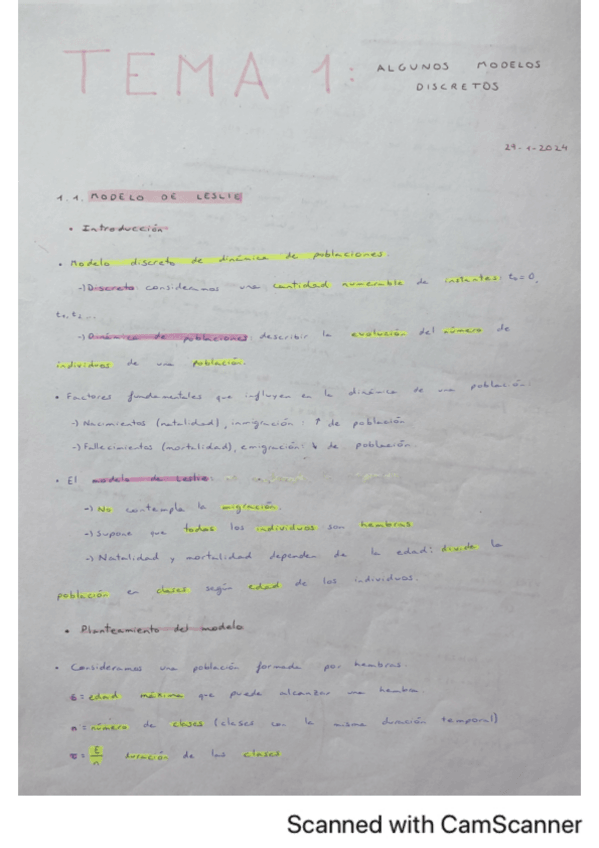 TEMA 1: ALGUNOS MODELOS
DISCRETOS
29-1-2024
1.1. MODELO DE LESLIE
• Introducción
• Modelo discreto de dinámica de poblaciones.
-) Discreto consideramos una cantidad numerable de instantes: t₀=0,
t₁, t₂...
-) Dinámica de poblaciones: describir la evolución del número de
individuos de una población.
• Factores fundamentales que influyen en la dinámica de una población
-) Nacimientos (natalidad), inmigración: ↑ de población
-) Fallecimientos (mortalidad), emigración: ↓ de población.
• El modelo de Leslie:
-) No contempla la migración.
-) Supone que todos los individuos son hembras
-) Natalidad y mortalidad dependen de la edad: divide la
población en clases según edad de los individuos.
• Planteamiento del modelo
• Consideramos una población formada por hembras.
= edad máxima que puede alcanzar una hembra
n = número de clases (clases con la misma duración temporal)
duración de las clases
Scanned with CamScanner